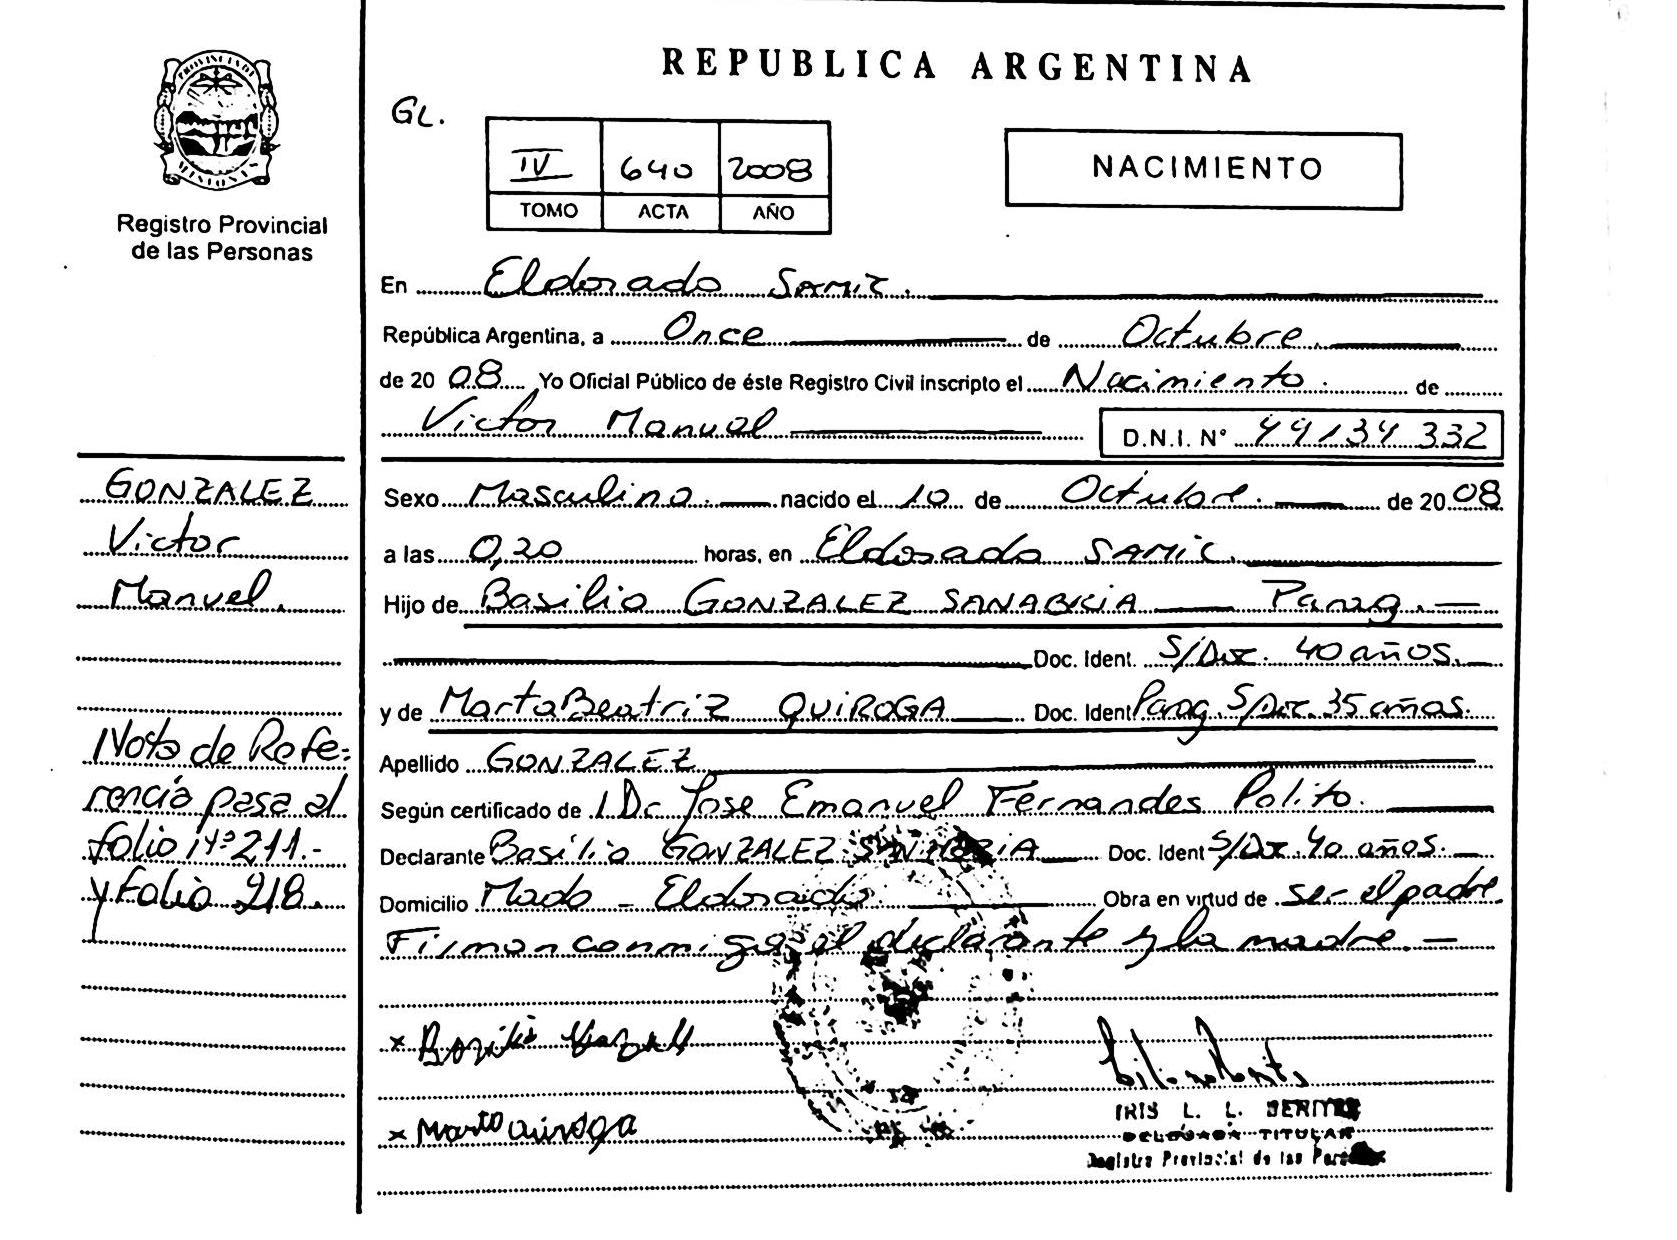 PROVINCIA DE
MISIONES
Registro Provincial
de las Personas
REPUBLICA ARGENTINA
GL.
IV 640 2008
TOMO ACTA AÑO
NACIMIENTO
En Eldorado SAMIC.
República Argentina, a Once de Octubre.
de 20 08 Yo Oficial Público de éste Registro Civil inscripto el Nacimiento. de
Victor Manuel D.N.I. N°
Sexo Masculino. nacido el 10 de Octubre. de 20 08
a las 0,20 horas, en Eldorado SAMIC.
Hijo de Basilio GONZALEZ SANABRIA Parag.
Doc. Ident. S/Doc. 40 años.
y de Marta Beatriz QUIROGA Doc. Ident Parag. S/Doc. 35 años.
Apellido GONZALEZ
Según certificado de Dr Jose Emanuel Fernandes Polito.
Declarante Basilio GONZALEZ SANABRIA Doc. Ident S/Doc. 40 años.
Domicilio Mado - Eldorado. Obra en virtud de ser el padre.
Firman conmigo el declarante y la madre.
x Basilio
x Marta Quiroga
IRIS L. L. BENITEZ
DELEGADA TITULAR
Registro Provincial de las Personas
GONZALEZ
Victor
Manuel.
Nota de Refe-
rencia pasa al
folio N° 211.-
y folio 218.